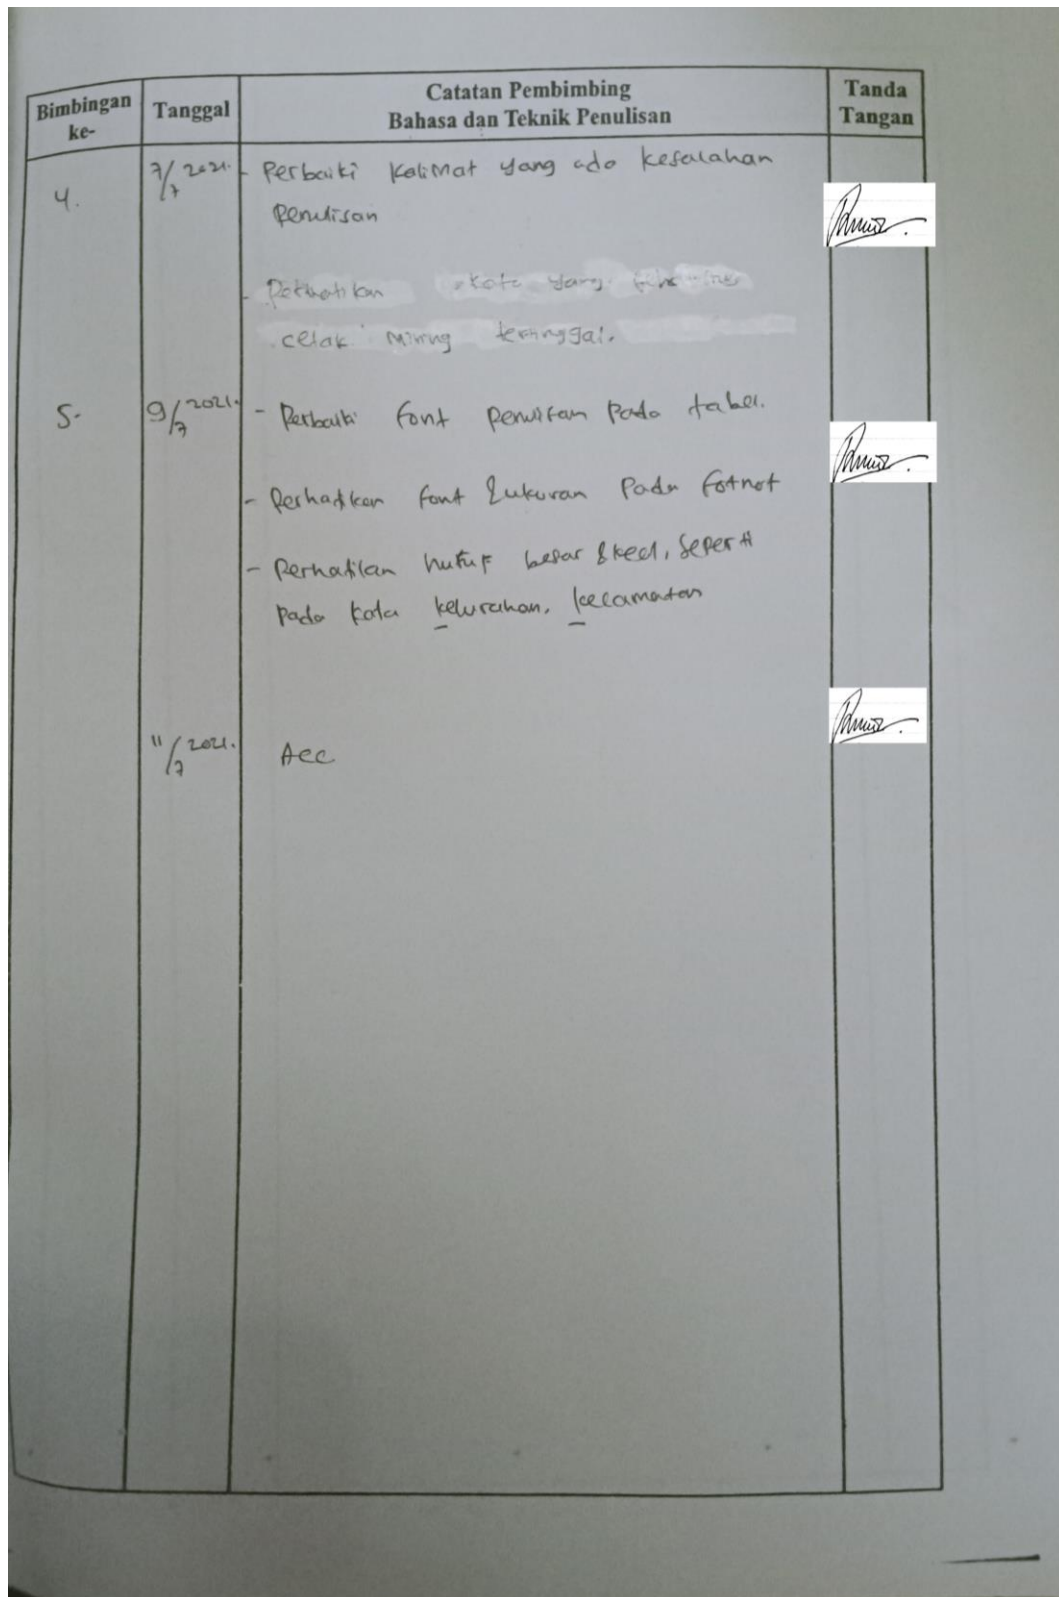 Bimbingan ke-
Tanggal
Catatan Pembimbing
Bahasa dan Teknik Penulisan
Tanda Tangan
4.
7/7 2021.
- Perbaiki kalimat yang ada kesalahan
penulisan
- Perhatikan kata yang
cetak miring tertinggal.
5.
9/7 2021.
- Perbaiki font penulisan pada tabel.
- Perhatikan font & ukuran pada fotnot
- Perhatikan huruf besar & kecil, seperti
pada kata kelurahan, kecamatan
11/7 2021.
Acc